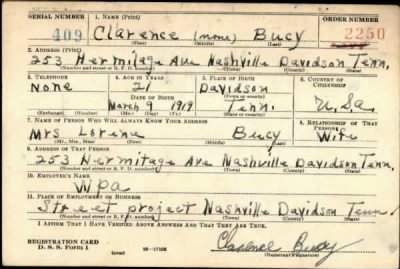 SERIAL NUMBER 1. NAME (Print) ORDER NUMBER
409 Clarence (none) Bucy 2250
(First) (Middle) (Last)
2. ADDRESS (Print)
253 Hermitage Ave Nashville Davidson Tenn.
(Number and street or R. F. D. number) (Town) (County) (State)
3. TELEPHONE 4. AGE IN YEARS 5. PLACE OF BIRTH 6. COUNTRY OF CITIZENSHIP
None 21 Davidson
DATE OF BIRTH (Town or county)
March 9 1919 Tenn. U.S.a
(Mo.) (Day) (Yr.) (State or country)
7. NAME OF PERSON WHO WILL ALWAYS KNOW YOUR ADDRESS 8. RELATIONSHIP OF THAT PERSON
Mrs Lorene Bucy Wife
(Mr., Mrs., Miss) (First) (Middle) (Last)
9. ADDRESS OF THAT PERSON
253 Hermitage Ave Nashville Davidson Tenn.
(Number and street or R. F. D. number) (Town) (County) (State)
10. EMPLOYER'S NAME
Wpa
11. PLACE OF EMPLOYMENT OR BUSINESS
Street project Nashville Davidson Tenn
(Number and street or R. F. D. number) (Town) (County) (State)
I AFFIRM THAT I HAVE VERIFIED ABOVE ANSWERS AND THAT THEY ARE TRUE.
REGISTRATION CARD
D. S. S. Form 1 (over) 16—17105 Clarence Bucy
(Registrant's signature)